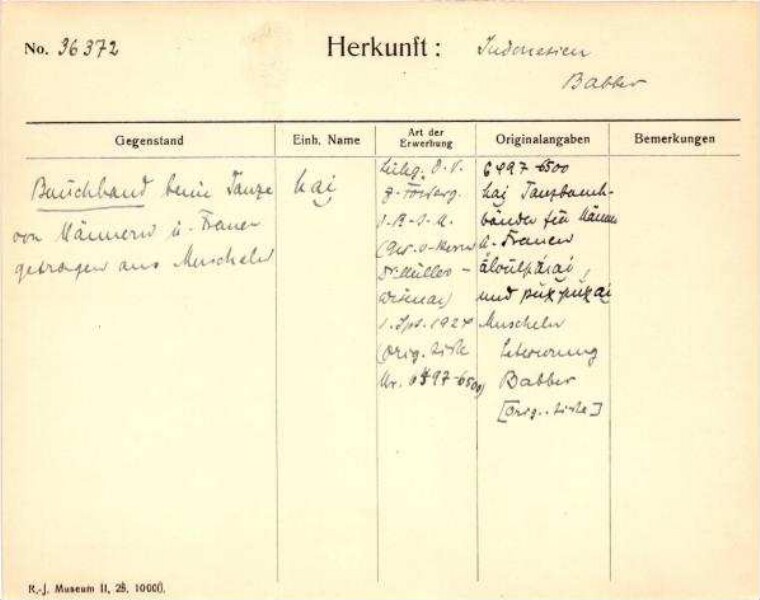 No. 36372
Herkunft: Indonesien
Babber
Gegenstand
Einh. Name
Art der
Erwerbung
Originalangaben
Bemerkungen
Bauchband beim Tanze
von Männern u. Frauen
getragen aus Muscheln
kaj
Leihg. d. V.
z. Förderg.
(Ges. v. Herrn
Dr. Müller-
Wismar)
1. Spt. 1927
(Orig. Liste
Nr. 6497-6500)
6497-6500
kaj Tanzbauch-
bänder für Männer
u. Frauen
und
Muscheln
Babber
[Orig.-Liste]
R.-J. Museum II, 28, 10000.